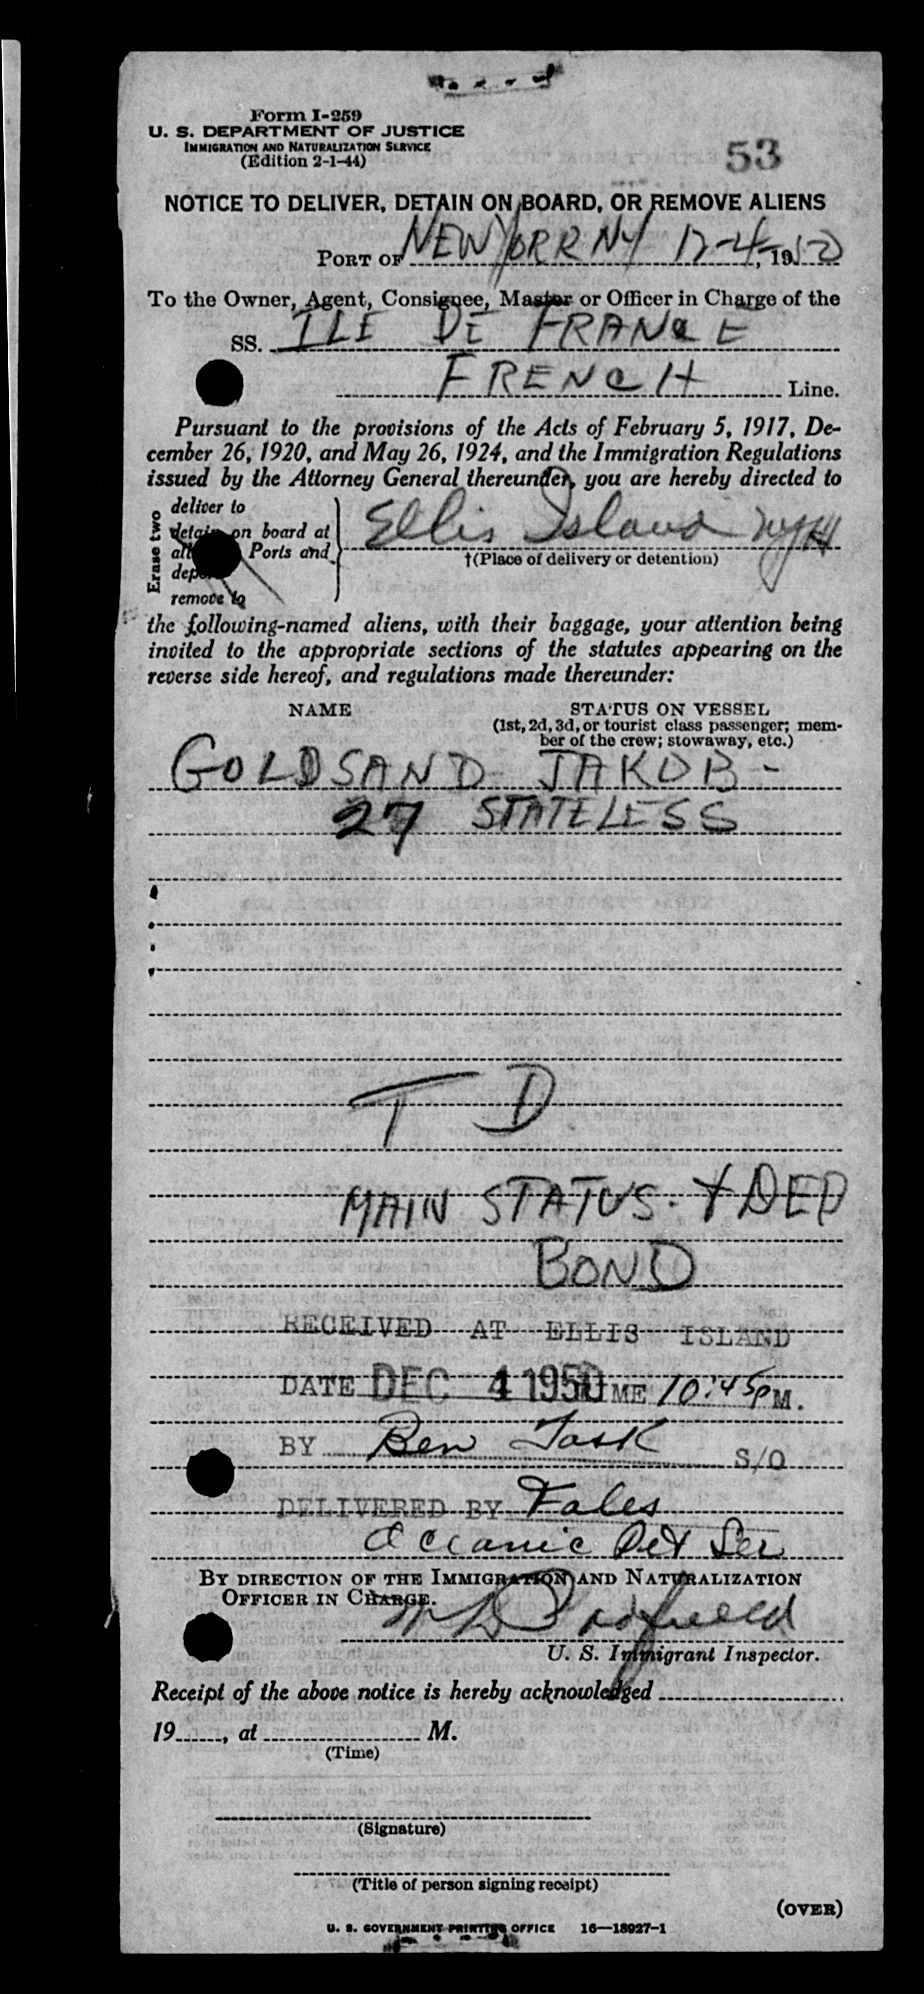 Form I-259
U. S. DEPARTMENT OF JUSTICE
IMMIGRATION AND NATURALIZATION SERVICE
(Edition 2-1-44)
53
NOTICE TO DELIVER, DETAIN ON BOARD, OR REMOVE ALIENS
PORT OF NEW YORK NY 12-4-, 1950
To the Owner, Agent, Consignee, Master or Officer in Charge of the
SS. ILE DE FRANCE
FRENCH Line.
Pursuant to the provisions of the Acts of February 5, 1917, De-
cember 26, 1920, and May 26, 1924, and the Immigration Regulations
issued by the Attorney General thereunder, you are hereby directed to
Erase two
deliver to
detain on board at
all Ports and
remove to
Ellis Island NYH
†(Place of delivery or detention)
the following-named aliens, with their baggage, your attention being
invited to the appropriate sections of the statutes appearing on the
reverse side hereof, and regulations made thereunder:
NAME STATUS ON VESSEL
(1st, 2d, 3d, or tourist class passenger; mem-
ber of the crew; stowaway, etc.)
GOLDSAND JAKOB -
27 STATELESS
T D
MAIN STATUS. + DEP
BOND
RECEIVED AT ELLIS ISLAND
DATE DEC 4 1950 TIME 10:45 P M.
BY Ben Task S/O
DELIVERED BY Fales
Oceanic Det Ser
BY DIRECTION OF THE IMMIGRATION AND NATURALIZATION
OFFICER IN CHARGE.
U. S. Immigrant Inspector.
Receipt of the above notice is hereby acknowledged
19......, at M.
(Time)
(Signature)
(Title of person signing receipt)
(OVER)
U. S. GOVERNMENT PRINTING OFFICE 16—18927-1